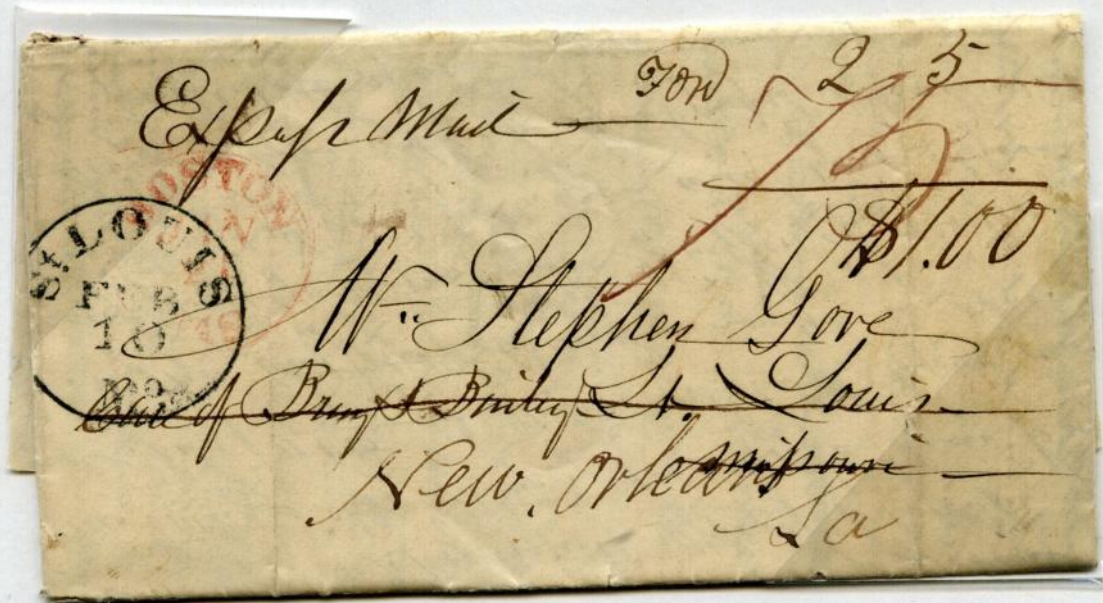 Express Mail Ford 25
75
$1.00
BOSTON
JAN
18
St. LOUIS
FEB
10
Mo.
Wm. Stephen Gove
Care of St. Louis
Missouri
New Orleans
La